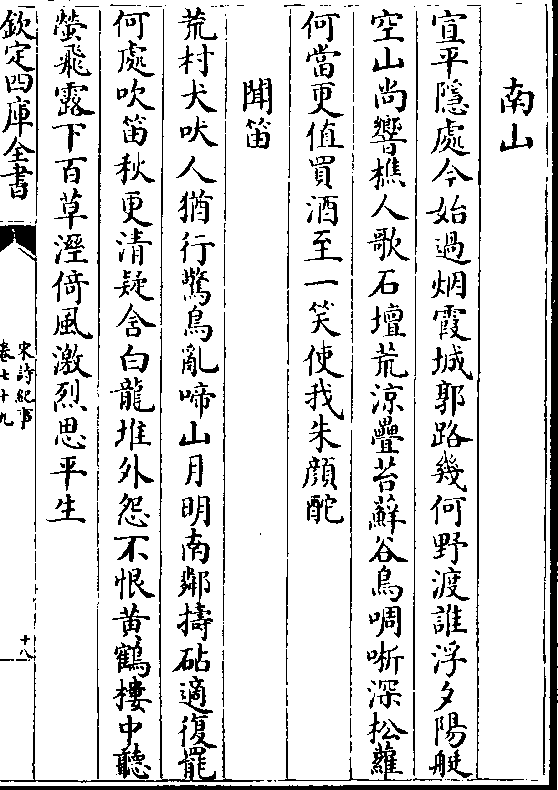 南山
宣平隱處今始過烟霞城郭路幾何野渡誰浮夕陽艇
空山尚響樵人歌石壇荒涼疊苔蘚谷鳥啁哳深松蘿
何當更值買酒至一笑使我朱顔酡
聞笛
荒村犬吠人猶行驚鳥亂啼山月明南鄰擣砧適復罷
何處吹笛秋更清疑含白龍堆外怨不恨黄鶴樓中聽
螢飛露下百草溼倚風激烈思平生
欽定四庫全書
宋詩紀事
卷七十九
十八